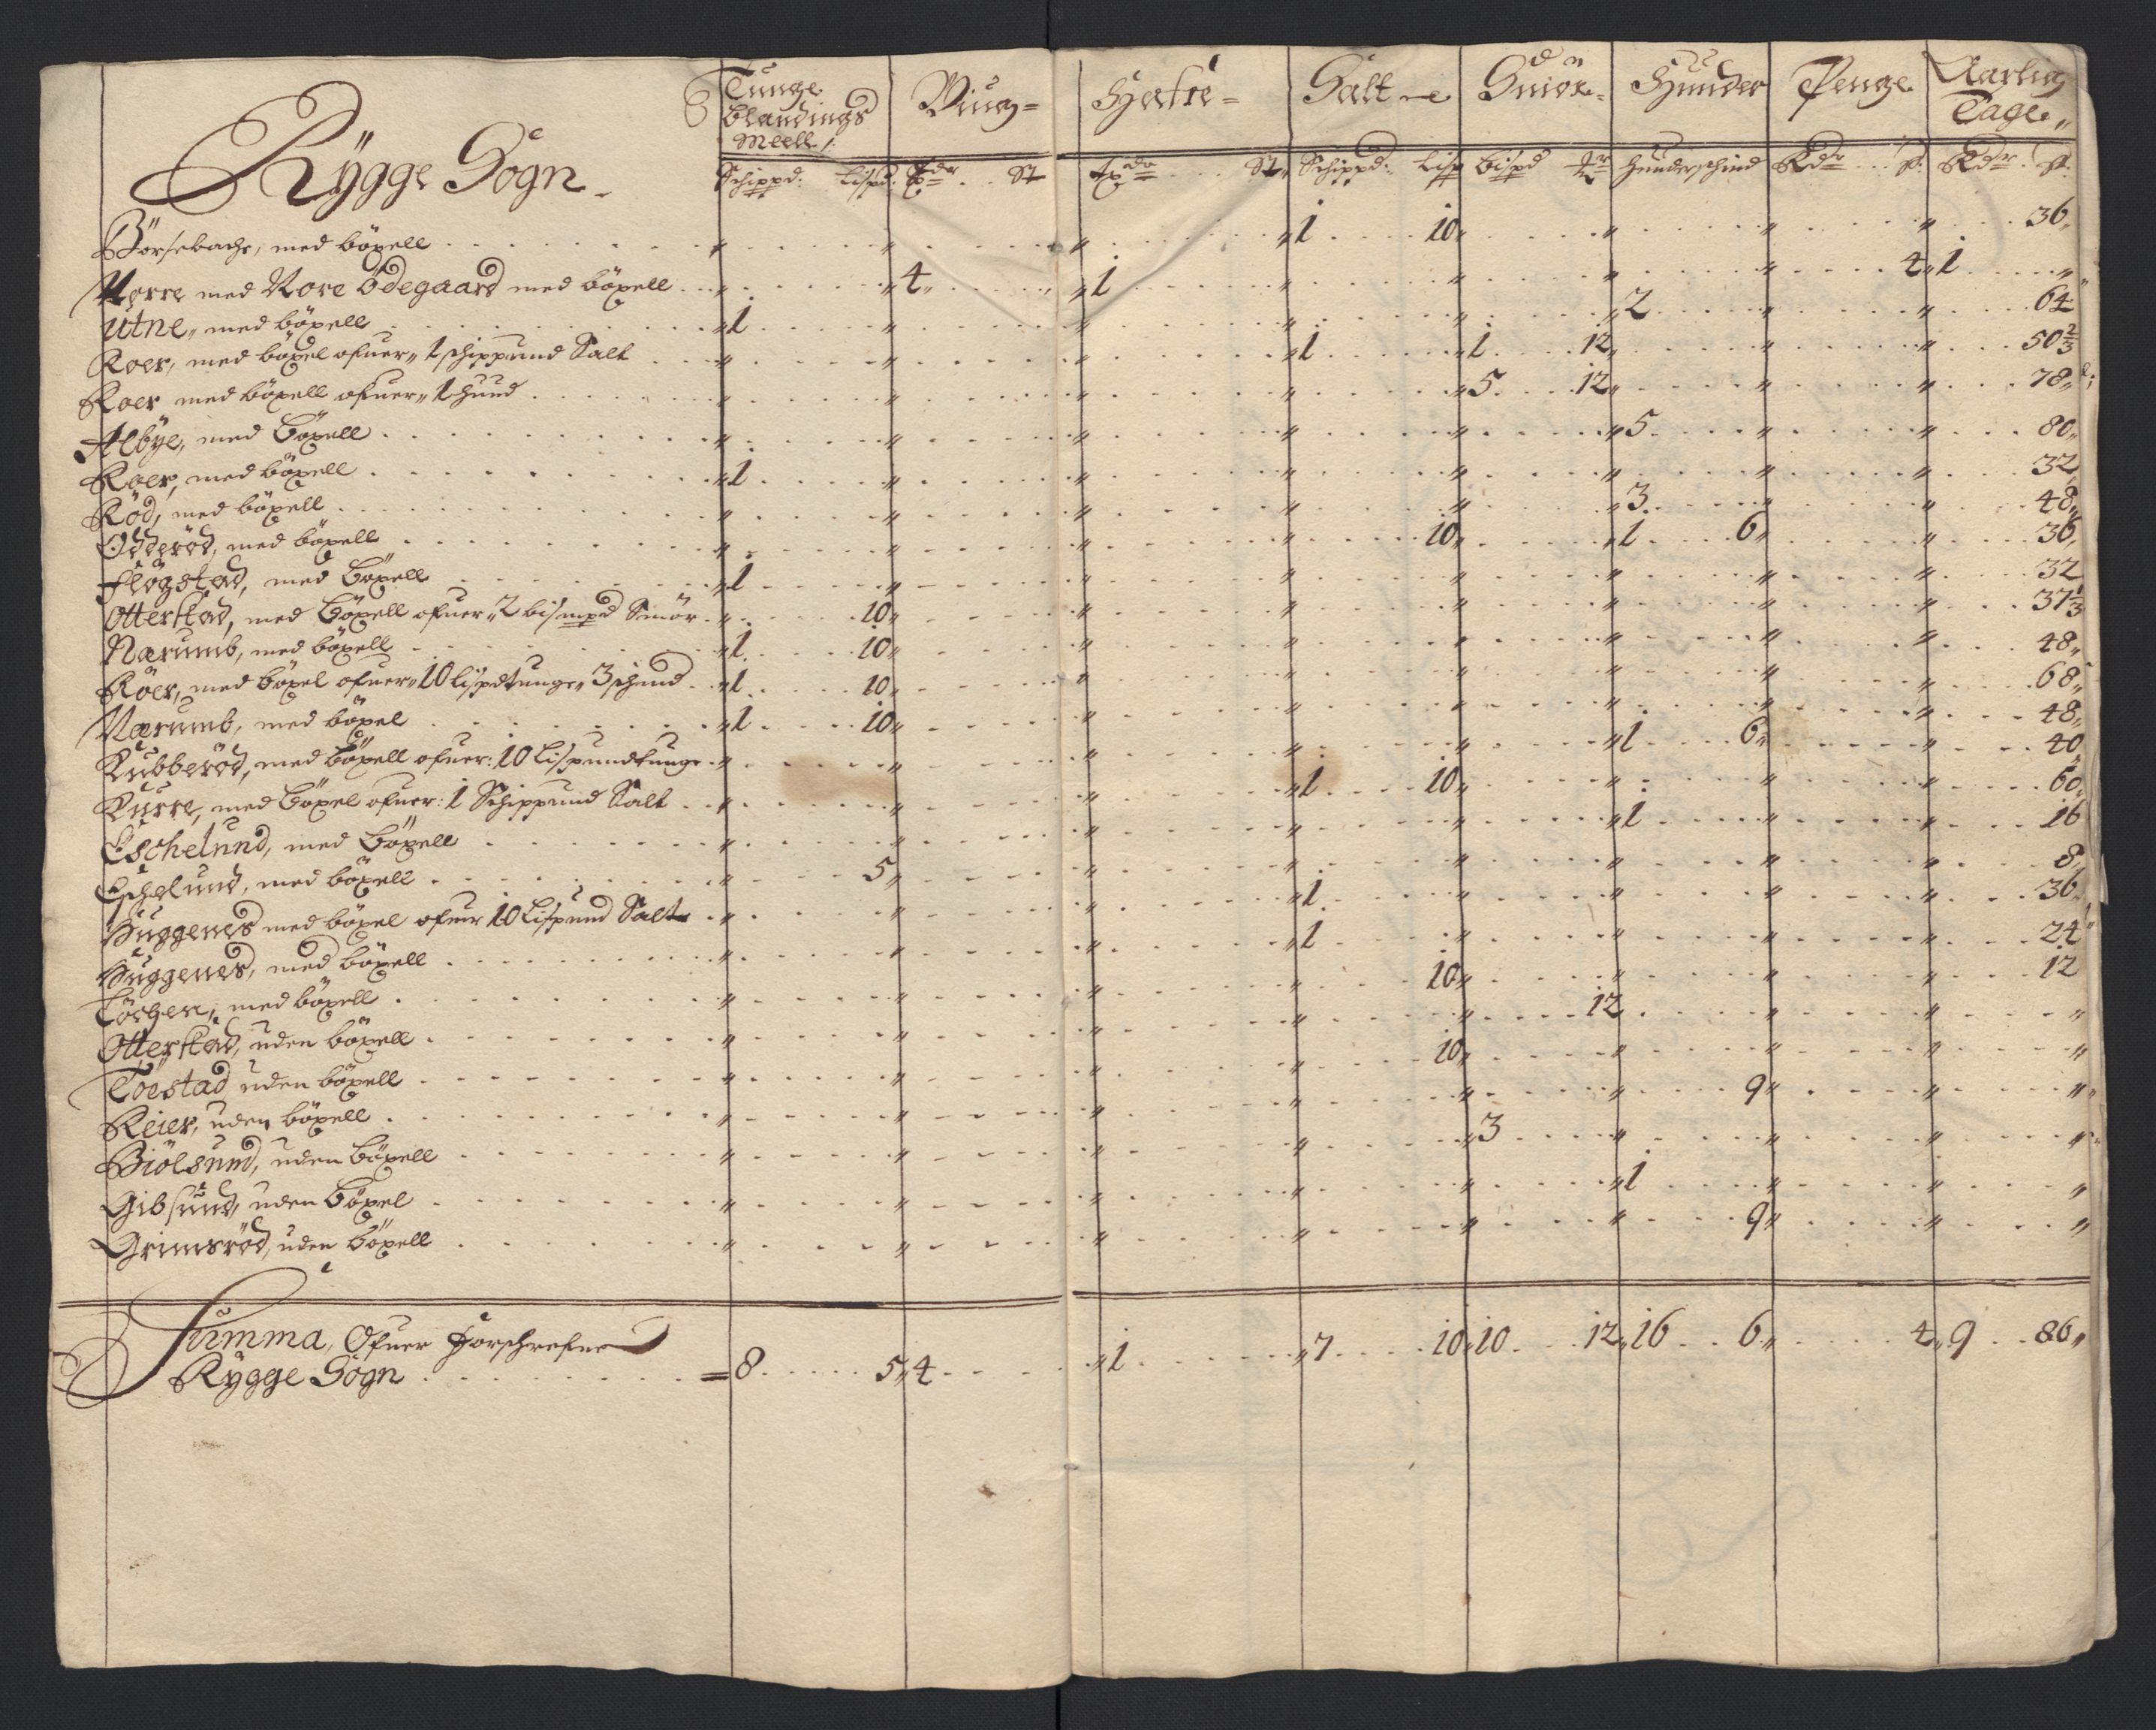 Rygge Sogn
Tunge blandings Meell / Biug= Hafre= Salt Smör Huuder Penge Aarlig Tage
Schippd: Lispd: Tdr St Tdr St Schippd: Lisp bispd mr: Huuder schind Rdr s: Rdr s:
Börsebache, med böxell 1 10 36
Nerre med Nore Ödegaard med böxell 4 1 4 1
Utne, med böxell 1 2 64
Roer, med böxel ofuer 1 schippund Salt 1 1 12 50 2/3
Roer med böxell ofuer 1 huud 5 12 78
Albye, med böxell 5 80
Roer, med böxell 1 32
Röd, med böxell 3 48
Odderöd, med böxell 10 1 6 36
Flögstad, med böxell 1 32
Otterstad, med böxell ofuer 2 bismpd Smör 10 37 1/3
Nærumb, med böxell 1 10 48
Röer, med böxel ofuer 10 lispd tunge 3 schind 1 10 68
Nærumb, med böxel 1 10 48
Kubberöd, med böxell ofuer: 10 Lispund tunge 1 6 40
Kurre, med böxel ofuer: 1 Schippund Salt 1 10 60
Eschelund, med böxell 1 16
Eschelund, med böxell 5 8
Huggenes med böxel ofuer 10 Lispund Salt 1 36
Huggenes, med böxell 1 24
med böxell 10 12
Otterstad, uden böxell 12
Töestad uden böxell 10
Reier, uden böxell 9
Biölsund, uden böxell 3
Gibsund, uden böxel 1
Grimsröd, uden böxell 9
Summa, Ofuer Forschrefne
Rygge Sogn 8 5 4 1 7 10 10 12 16 6 4 9 86